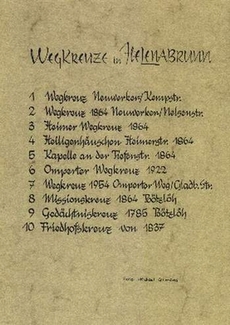 WEGKREUZE in HELENABRUNN
1 Wegkreuz Neuwerken/Kempstr.
2 Wegkreuz 1864 Neuwerken/Nelsenstr.
3 Heimer Wegkreuz 1864
4 Heiligenhäuschen Heimerstr. 1864
5 Kapelle an der Tiefenstr. 1864
6 Omperter Wegkreuz 1922
7 Wegkreuz 1954 Omperter Weg/Gladb. Str.
8 Missionskreuz 1864 Bötzlöh
9 Gedächtniskreuz 1785 Bötzlöh
10 Friedhofskreuz von 1837